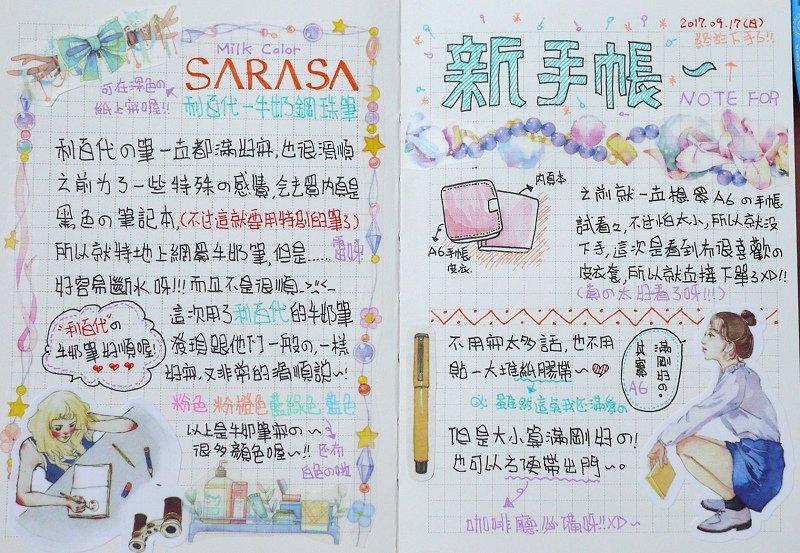 Milk Color
SARASA
利百代－牛奶鋼珠筆
可在深色の
紙上寫喔!!
利百代の筆一直都滿好寫,也很滑順
之前為了一些特殊の感覺,会去買內頁是
黑色の筆記本,(不过這就要用特別的筆了)
所以就特地上網買牛奶筆,但是......雷呀
好容易斷水呀!!!而且不是很順
這次用了利百代的牛奶筆
發現跟他牌一般の,一樣
好寫,又非常的滑順說~!
"利百代"の
牛奶筆好順喔!
粉色 粉橙色 藍綠色 藍色
以上是牛奶筆寫の~
很多顏色喔~!! 还有
白色の啦
2017.09.17(日)
終於下手了!!
新手帳~
NOTE FOR
內頁本
A6手帳
皮衣
之前就一直想買A6の手帳
試看看,不过怕太小,所以就沒
下手,這次是看到有很喜歡の
皮衣套,所以就直接下單了XD!!
(真の太好看了呀!!!)
不用寫太多話,也不用
貼一大堆紙膠帶~
雖然這点我还滿愛の
滿剛好の。
其實
A6
但是大小算滿剛好の!
也可以方便帶出門~。
咖啡廳必備呀!!XD~